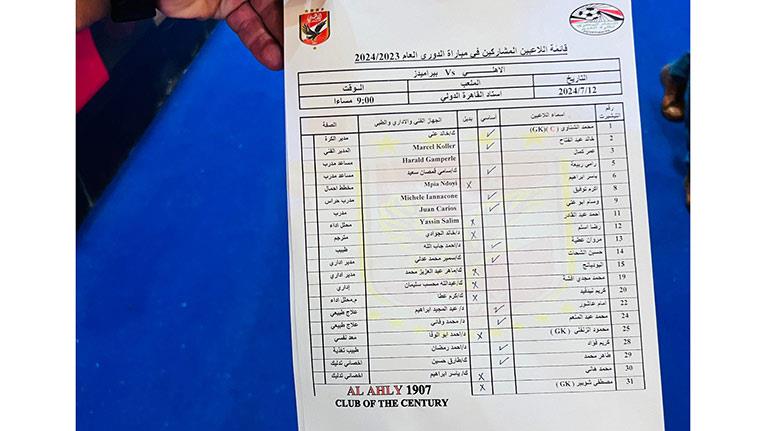 قائمة اللاعبين المشاركين في مباراة الدوري العام 2024/2023
الاهلـــــي Vs بيراميدز
التاريخ الملعب الـوقت
2024/7/12 استاد القاهرة الدولي 9:00 مساءا
رقم التيشيرت اسماء اللاعبين أساسي بديل الجهاز الفني والاداري والطبي الصفة
1 محمد الشناوي ( C )(GK) ✓ ك/خالد علي مدير الكرة
2 خالد عبد الفتاح ✓ Marcel Koller المدير الفني
3 عمر كمال Harald Gamperle مساعد مدرب
5 رامي ربيعة ✓ ك/سامي قمصان سعيد مساعد مدرب
6 ياسر ابراهيم x Mpia Ndoyi مخطط احمال
8 أكرم توفيق ✓ Michele Iannacone مدرب حراس
9 وسام أبو علي ✓ Juan Carlos مدرب
11 أحمد عبد القادر x Yassin Salim محلل اداء
12 رضا سليم x د/خالد الجوادي مترجم
13 مروان عطية ✓ د/احمد جاب الله طبيب
14 حسين الشحات ✓ ك/سمير محمد عدلي مدير اداري
15 اليوديانج x ك/ماهر عبد العزيز محمد مدير اداري
19 محمد مجدي افشة x ك/عبدالله محسب سليمان إداري
20 كريم نيدفيد x ك/كرم عطا م.محلل اداء
22 امام عاشور ✓ د/ عبد المجيد ابراهيم علاج طبيعي
24 محمد عبد المنعم ✓ د/ محمد وفائي علاج طبيعي
25 محمود الزنفلي ( GK ) x د/احمد ابو الوفا معد نفسي
28 كريم فؤاد ✓ د/احمد رمضان طبيب تغذية
29 طاهر محمد ✓ ك/طارق حسين اخصائي تدليك
30 محمد هاني x ك/ ياسر ابراهيم اخصائي تدليك
31 مصطفي شوبير ( GK ) x
AL AHLY 1907
CLUB OF THE CENTURY